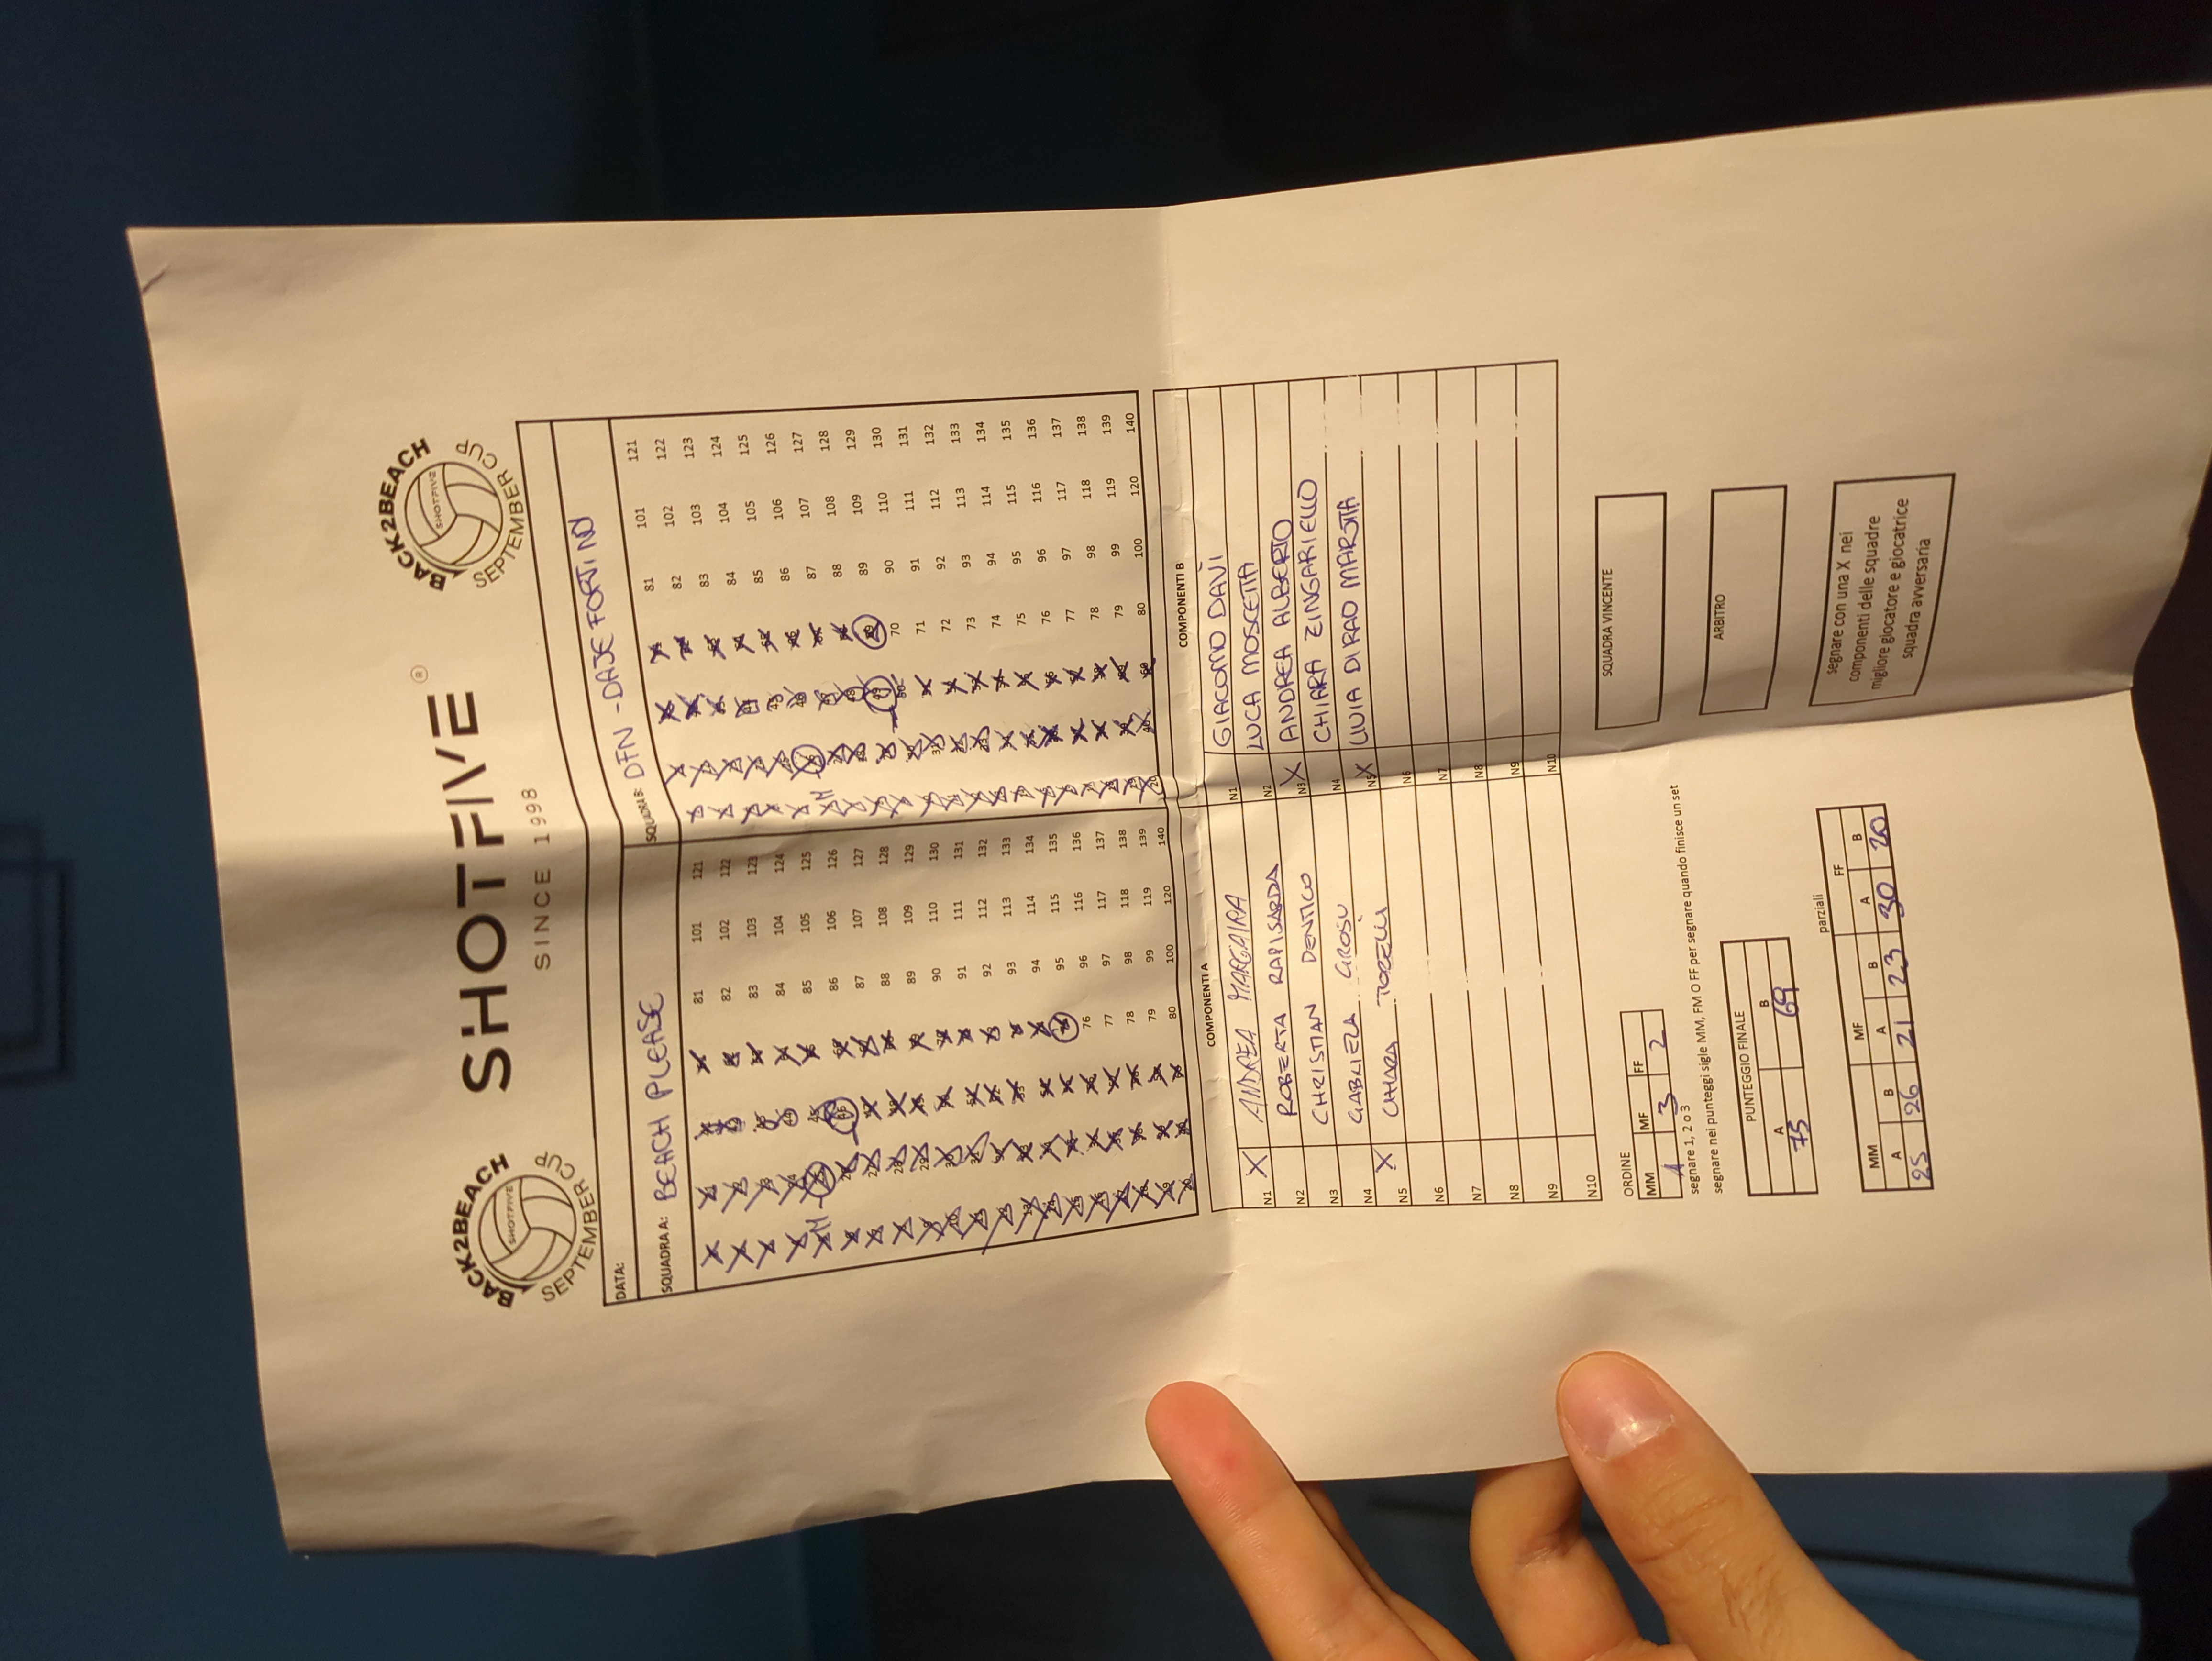 BACK2BEACH
SHOTFIVE
SEPTEMBER CUP
SHOTFIVE ®
SINCE 1998
BACK2BEACH
SHOTFIVE
SEPTEMBER CUP
DATA:
SQUADRA A: BEACH PLEASE
SQUADRA B: DFN - DAJE FORTINN
81 101 121
82 102 122
83 103 123
84 104 124
85 105 125
86 106 126
87 107 127
88 108 128
89 109 129
90 110 130
91 111 131
92 112 132
93 113 133
94 114 134
95 115 135
76 96 116 136
77 97 117 137
78 98 118 138
79 99 119 139
80 100 120 140
81 101 121
82 102 122
83 103 123
84 104 124
85 105 125
86 106 126
87 107 127
88 108 128
89 109 129
70 90 110 130
71 91 111 131
72 92 112 132
73 93 113 133
74 94 114 134
75 95 115 135
76 96 116 136
77 97 117 137
78 98 118 138
79 99 119 139
80 100 120 140
COMPONENTI A
N1 X ANDREA MARGAIRA
N2 ROBERTA RAPISARDA
N3 CHRISTIAN DENTICO
N4 GABRIELA GROSU
N5 X CHIARA TORELLI
N6
N7
N8
N9
N10
COMPONENTI B
N1 GIACOMO DAVÌ
N2 LUCA MOSCETTA
N3 X ANDREA ALBERTO
N4 CHIARA ZINGARIELLO
N5 X LIVIA DI RAO MAROTTA
N6
N7
N8
N9
N10
ORDINE
MM MF FF
1 3 2
segnare 1, 2 o 3
segnare nei punteggi sigle MM, FM O FF per segnare quando finisce un set
PUNTEGGIO FINALE
A B
75 69
parziali
MM MF FF
A B A B A B
25 26 21 23 30 20
SQUADRA VINCENTE
ARBITRO
segnare con una X nei
componenti delle squadre
migliore giocatore e giocatrice
squadra avversaria